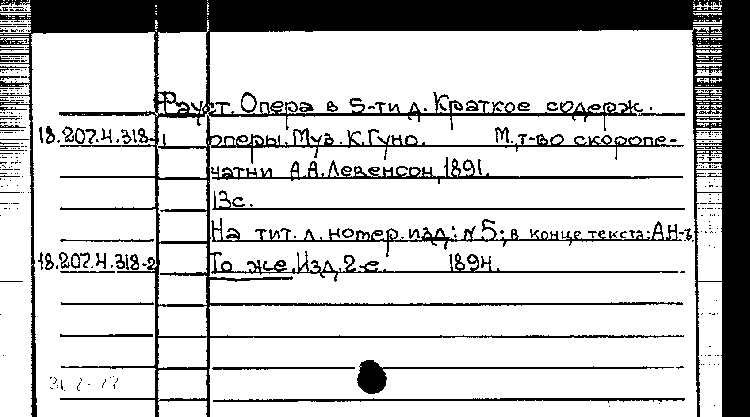 Фауст. Опера в 5-ти д. Краткое содерж.
18.207.4.318-1 оперы. Муз. К. Гуно. М., т-во скоропе-
чатни А.А. Левенсон, 1891.
13с.
На тит. л. номер. изд: N5; в конце текста: А.Н-ъ
18.207.4.318-2 То же. Изд. 2-е. 1894.